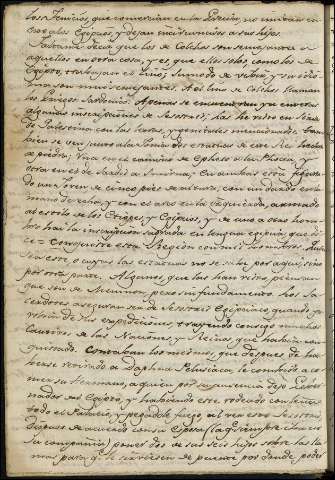 los Fenicios, que comercian en la Grecia, no imitan en
esto a los Egipcios, y dejan incircuncisos a sus hijos.
Faltame decir que los de Colchos son semejantes a
aquellos en otra cosa, y es, que ellos solos, como los de
Egipto, trabajan el lino; su modo de vivir, y su idio-
ma son muy semejantes. Al lino de Colchos llaman
los Griegos Sardonico. Apenas se encuentran ya enteras
algunas inscripciones de Sesostris; las he visto en
Palestina con las letras, y genitales mencionados: tam-
bien se ven junto a la Jonia dos estatuas de este Rey
a piedra; Una en el camino de Epheso a la Phocea, y
otra en el de Sardis a Smirna; En ambas está figura-
do un Joven de cinco pies de altura, con un dardo en la
mano derecha, y con el arco en la izquierda, armado
al estilo de los Griegos, y Egipcios, y de uno a otro hom-
bro hai la inscripción sagrada en lengua egipcia, que di-
ce = Conquisté esta Region con mis hombros.
sea este, o cuyas las estatuas no se sabe por aqui, sino
por otra parte. Algunos, que las han visto, piensan
que son de Memnon, pero sin fundamento. Los Sa-
cerdotes aseguran ser de Sesostris Egipciaco, quando
volvia de sus expediciones, trayendo consigo muchos
cautivos de las Naciones, y Reinos que habia con-
quistado. Contaban los mismos, que despues de ha-
berse retirado a Daphnes Pelusiaca, le combidó a co-
mer su hermano, a quien por su ausencia dejo Gober-
nador del Egipto, y habiendo este rodeado con leña
todo el Palacio, y pegadole fuego, al ver esto Sesostris,
dispuso de acuerdo con su esposa (la qual siempre
su compañia) poner dos de sus seis hijos sobre las lla-
mas para que le sirviesen de puente por donde poder